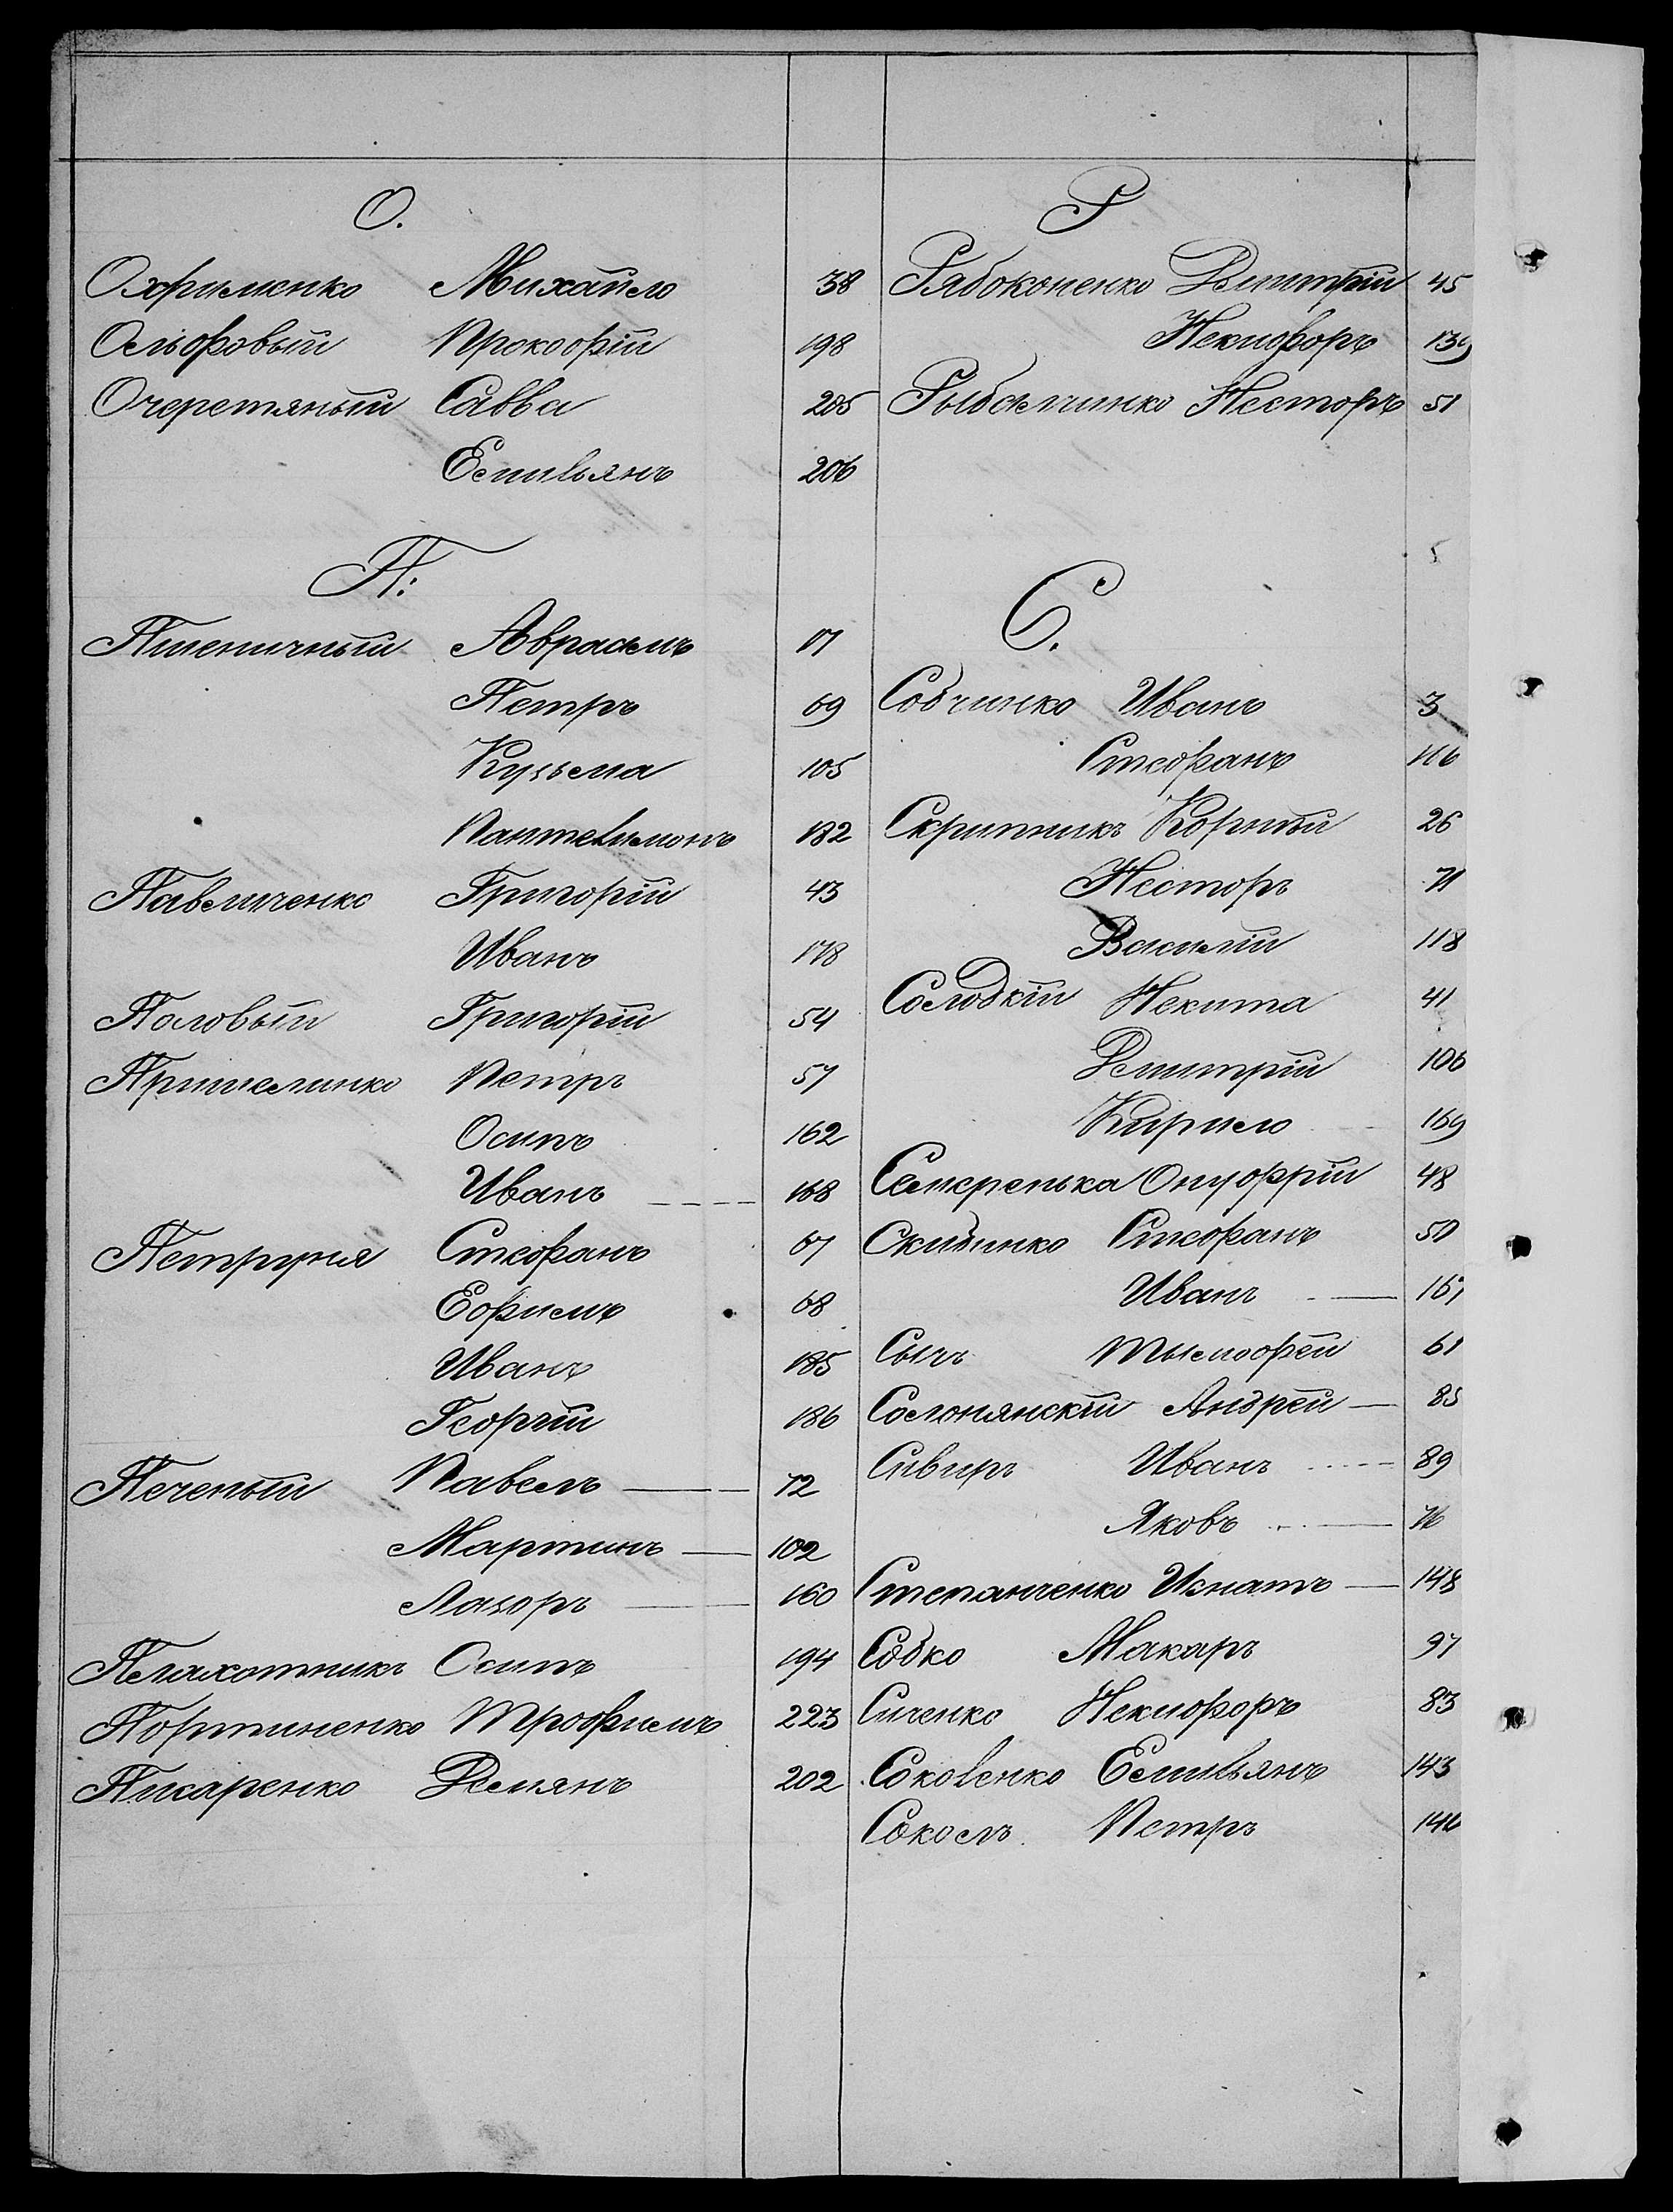 О.
Охрименко Михайло 38
Ольфовый Прокофій 198
Очеретяный Савва 205
Емильянъ 206
П:
Пшеничный Авраамъ 17
Петръ 69
Кузьма 105
Пантелимонъ 182
Павличенко Григорій 43
Иванъ 178
Паловый Григорій 54
Пришелинко Петръ 57
Осипъ 162
Иванъ 168
Петруня Стефанъ 67
Ефимъ 68
Иванъ 185
Георгій 186
Печеный Павелъ 72
Мартинъ 102
Лазоръ 160
Плахотникъ Осипъ 194
Портиненко Трофимъ 223
Писаренко Демянъ 202
Р
Рябоконенко Дмитрій 45
Некифоръ 139
Рыбалчинко Несторъ 51
С.
Совчинко Иванъ 3
Стефанъ 116
Скрипникъ Корній 26
Несторъ 71
Василій 118
Солодкій Некита 41
Дмитрій 106
Кирило 169
Семеренька Онуфрій 48
Скибинко Стефанъ 50
Иванъ 167
Сычъ Тымофей 61
Солонянскій Андрей 85
Сивиръ Иванъ 89
Яковъ 76
Степанченко Игнатъ 148
Собко Макаръ 97
Сиченко Некифоръ 83
Соколенко Емильянъ 143
Соколъ Петръ 146